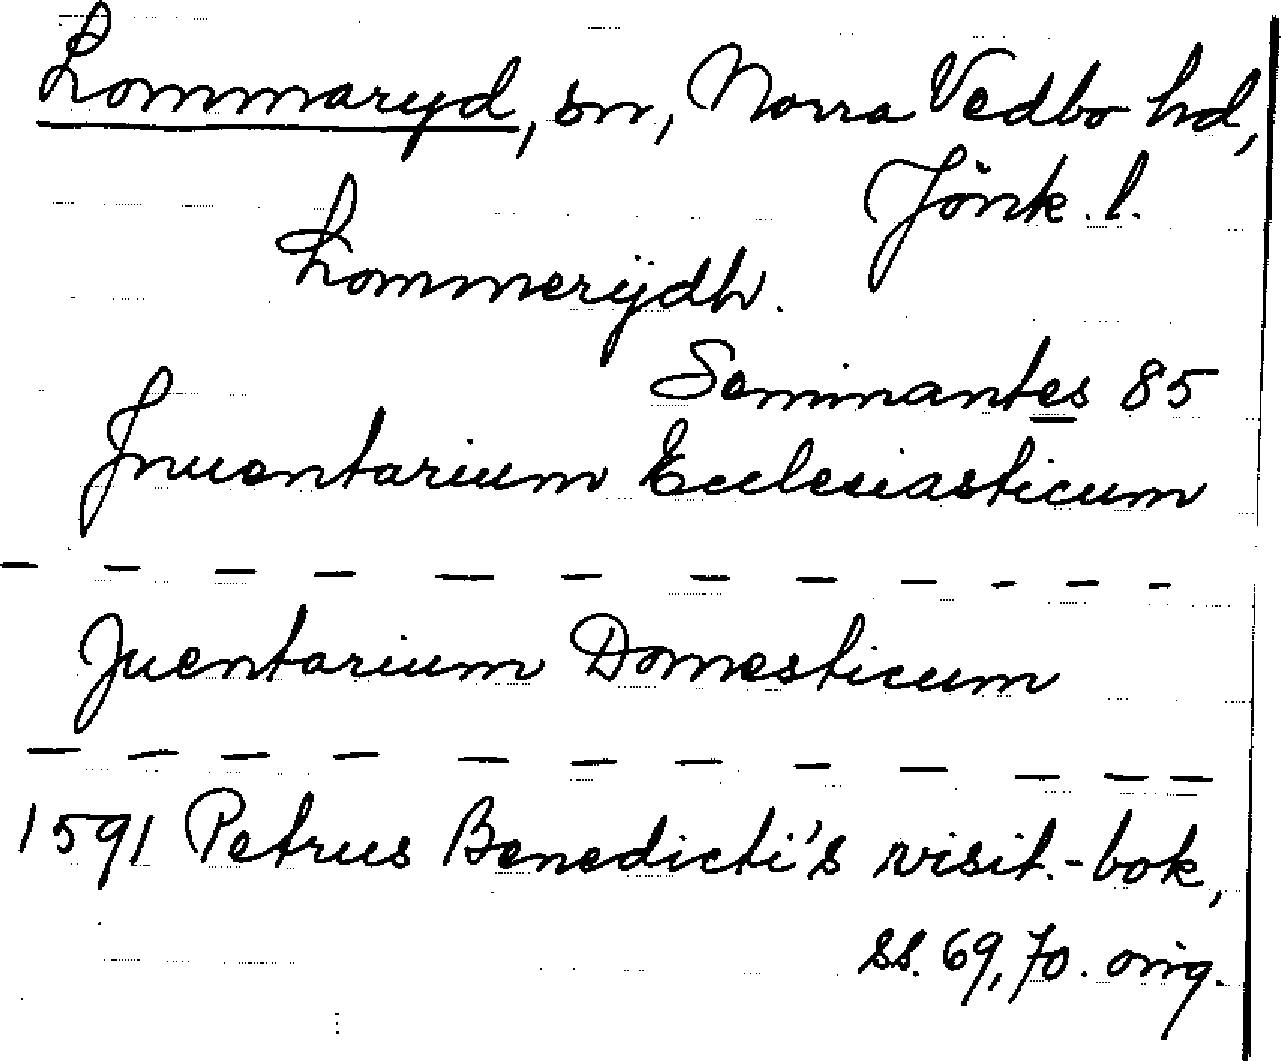 Lommaryd, sn, Norra Vedbo hd,
Jönk. l.
Lommerÿdh.
Seminantes 85
Inuentarium Ecclesiasticum
— — — — — — — — — — — —
Juentarium Domesticum
— — — — — — — — — — — —
1591 Petrus Benedicti's visit.-bok,
ss. 69, 70. orig.